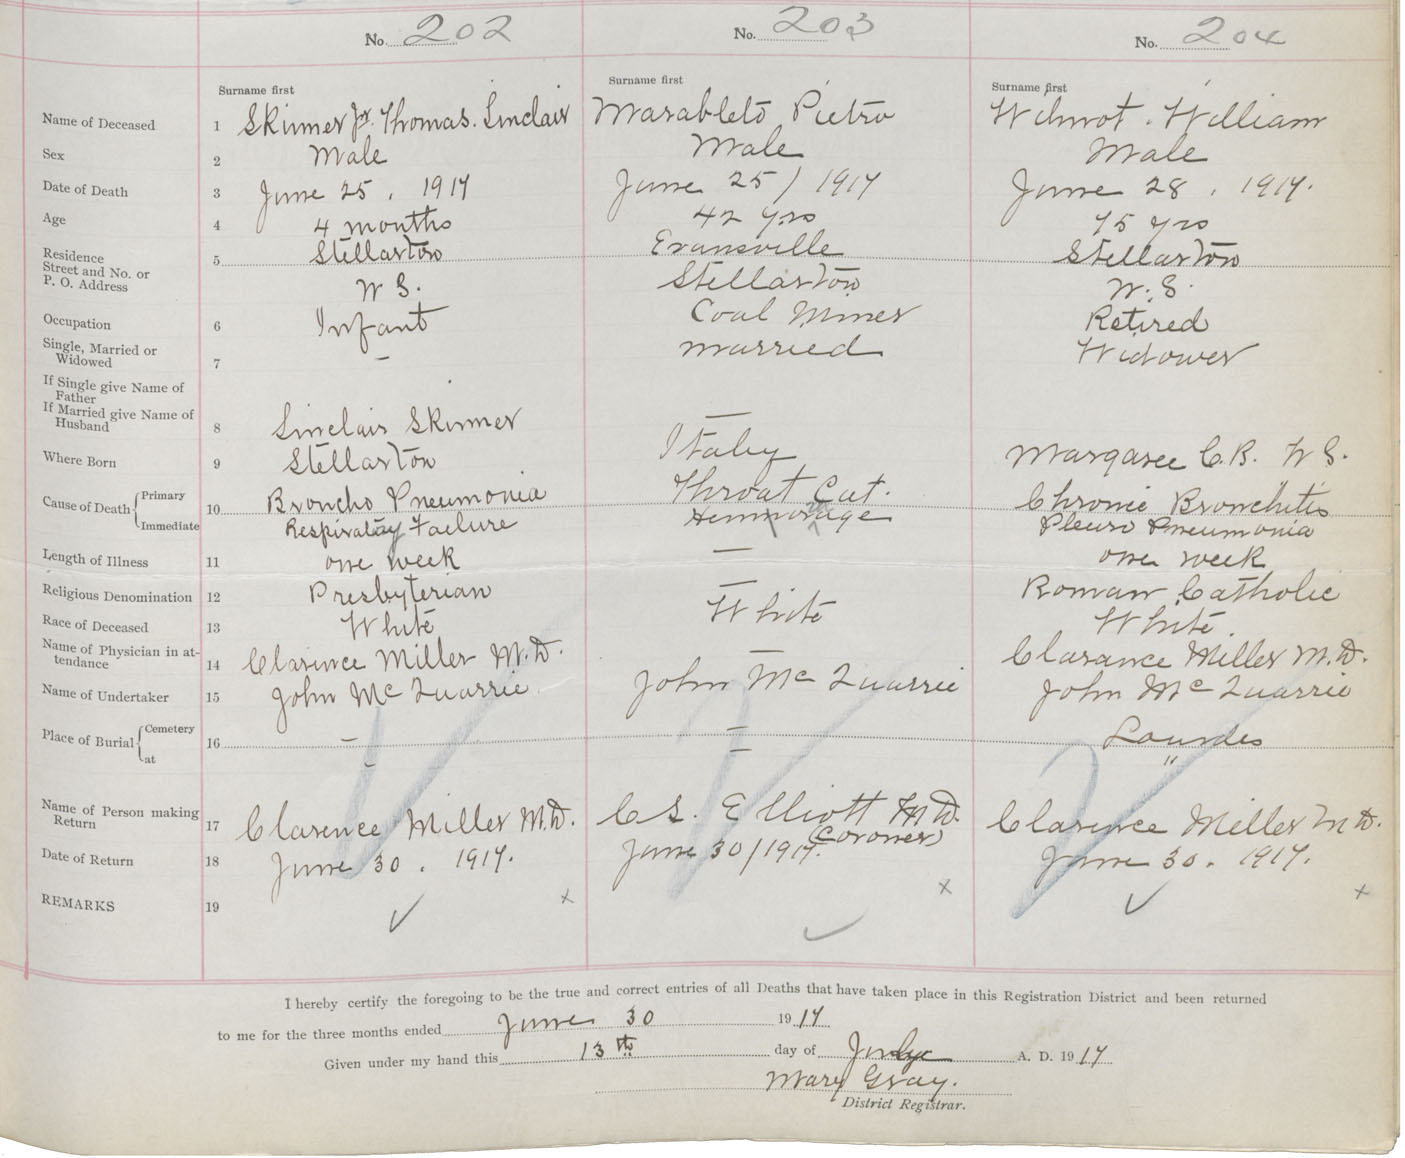 No. 202 No. 203 No. 204
Surname first Surname first Surname first
Name of Deceased 1 Skinner Jr. Thomas. Sinclair Marableto Pietro Wilmot. William
Sex 2 Male Male Male
Date of Death 3 June 25, 1917 June 25/1917 June 28, 1917.
Age 4 4 months 42 yrs 75 yrs
Residence Stellarton Evansville Stellarton
Street and No. or 5
P. O. Address N S. Stellarton N. S.
Occupation 6 Infant Coal Miner Retired
Single, Married or
Widowed 7 – Married Widower
If Single give Name of
Father
If Married give Name of
Husband 8 Sinclair Skinner —
Where Born 9 Stellarton Italy Margaree C.B. N S.
Cause of Death { Primary 10 Broncho Pneumonia Throat Cut. Chronic Bronchitis
Immediate Respiratory Failure Hemmorage Pleuro Pneumonia
Length of Illness 11 one week — one week
Religious Denomination 12 Presbyterian — Roman Catholic
Race of Deceased 13 White White White.
Name of Physician in at-
tendance 14 Clarence Miller M.D. — Clarance Miller M.D.
Name of Undertaker 15 John McQuarrie. John McQuarrie John McQuarrie
Place of Burial { Cemetery 16 – – Lourdes
at – – "
Name of Person making
Return 17 Clarence Miller M.D. C S. Elliott M D. Clarence Miller M D.
(Coroner)
Date of Return 18 June 30. 1917. June 30/1917. June 30. 1917.
REMARKS 19
I hereby certify the foregoing to be the true and correct entries of all Deaths that have taken place in this Registration District and been returned
to me for the three months ended June 30 1917
Given under my hand this 13th day of July A. D. 1917
Mary Gray.
District Registrar.